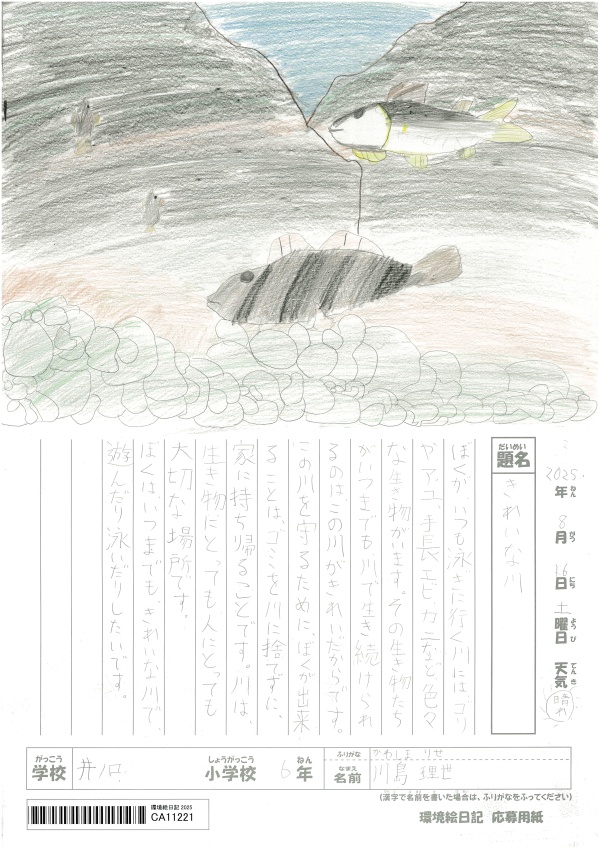 2025年ねん 8月がつ 16日にち 土曜日ようび 天気てんき 晴れ
題名だいめい
きれいな川
ぼくがいつも泳ぎに行く川には、ゴリ
やアユ、手長エビ、カニなど色々
な生き物がいます。その生き物たち
がいつまでも川で生き続けられ
るのは、この川がきれいだからです。
この川を守るために、ぼくが出来
ることは、ゴミを川に捨てずに、
家に持ち帰ることです。川は、
生き物にとっても人にとっても
大切な場所です。
ぼくは、いつまでも、きれいな川で、
遊んだり泳いだりしたいです。
がっこう 学校 しょうがっこう 小学校 6年ねん
ふりがな かわしま りせ
なまえ 名前 川島 理世
(漢字で名前を書いた場合は、ふりがなをふってください)
環境絵日記 応募用紙
環境絵日記 2025
CA11221